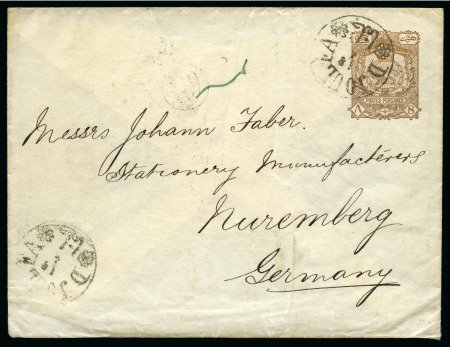 POSTES PERSANES
8
Messrs Johann Faber.
Stationery Manufacterers
Nuremberg
Germany
DJOULFA
DJOULFA